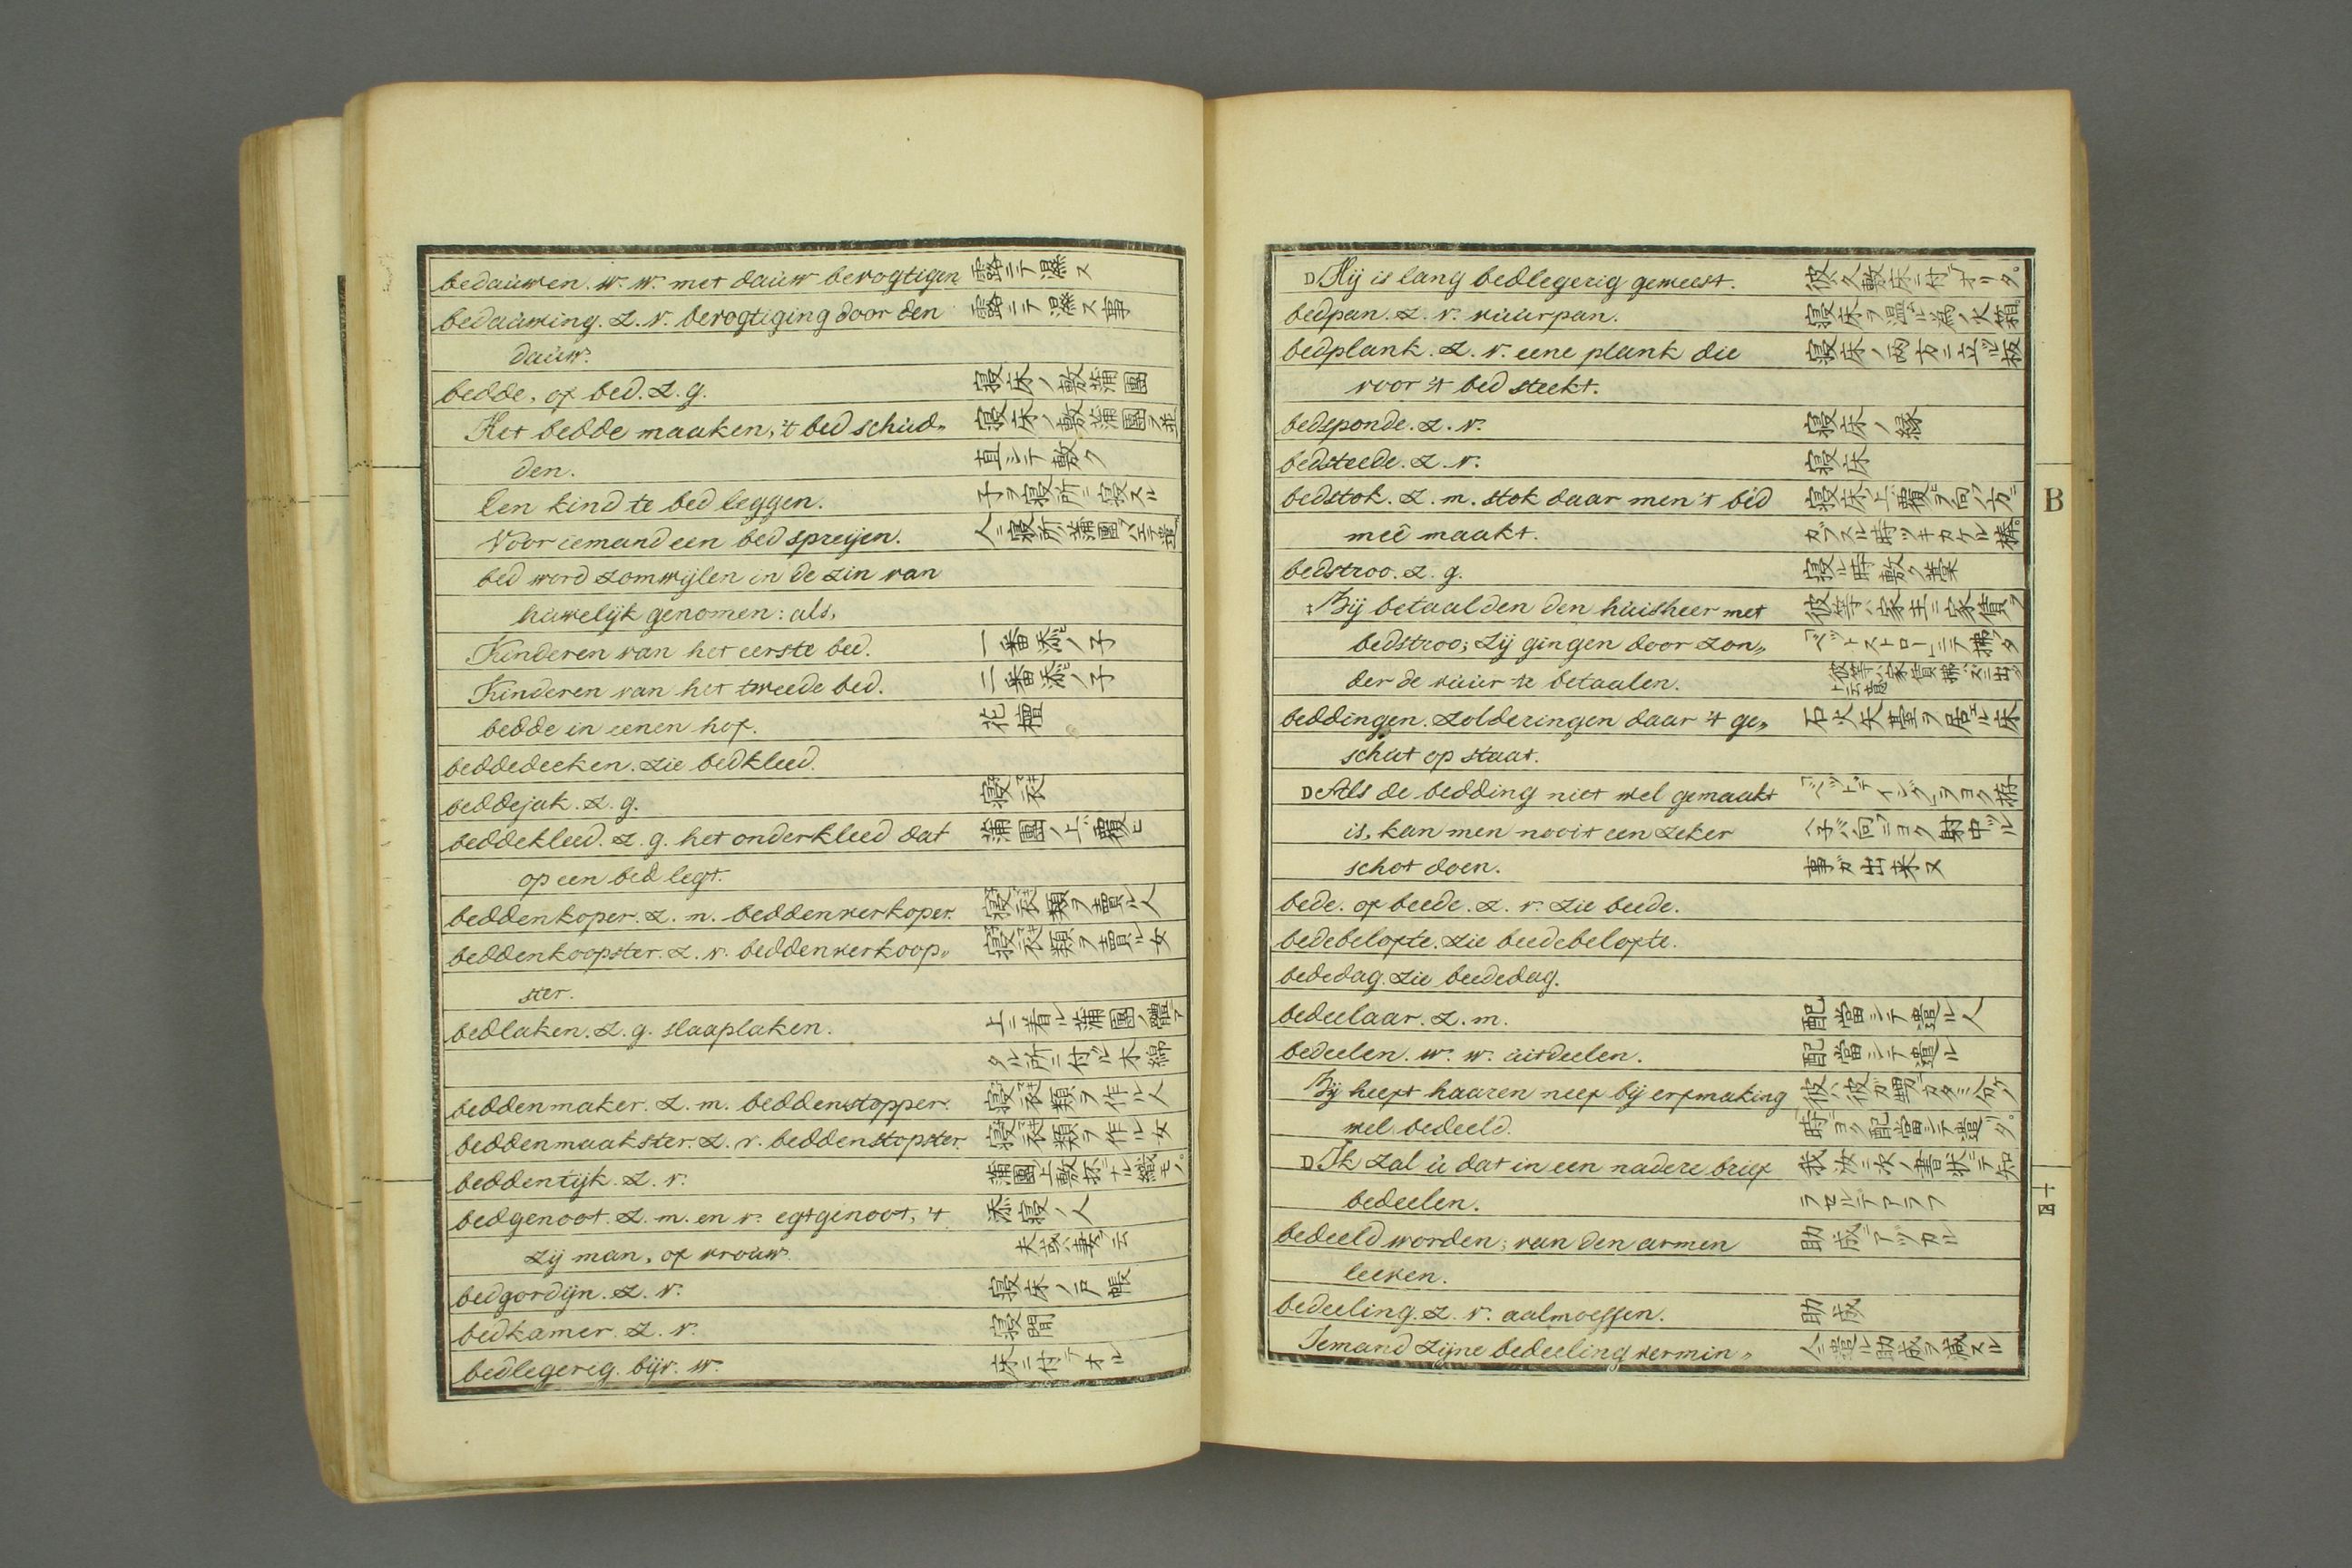 bedaùwen. w. w. met daùw bevogtigen 露ニテ濕ス
bedaùwing. z. v. bevogtiging door den 露ニテ濕ス事
daùw.
bedde, of bed. z. g. 寝床ノ敷蒲團
Het bedde maaken, 't bed schùd„ 寝床ノ敷蒲團ヲ並
den. 直シテ敷ク
Een kind te bed leggen. 子ヲ寝所ニ寝スル
Voor iemand een bed spreijen.
bed word zomwijlen in de zin van
hùwelijk genomen: als,
Kinderen van het eerste bed. 一番添ヒノ子
Kinderen van het tweede bed. 二番添ヒノ子
bedde in eenen hof. 花檀
beddedeeken. zie bedkleed.
beddejak. z. g. 寝衣
beddekleed. z. g. het onderkleed dat 蒲團ノ上ハ覆ヒ
op een bed legt.
beddenkoper. z. m. beddenverkoper. 寝衣類ヲ賣ル人
beddenkoopster. z. v. beddenverkoop„ 寝衣類ヲ賣ル女
ster.
bedlaken. z. g. slaaplaken. 上ニ着ル蒲團ノ體ニア
タル所ニ付ル木綿
beddenmaker. z. m. beddenstopper. 寝衣類ヲ作ル人
beddenmaakster. z. v. beddenstopster. 寝衣類ヲ作ル女
beddentijk. z. v.
bedgenoot. z. m. en v. egtgenoot, 't 添寝ノ人
zij man, of vroùw. 夫或ハ妻ヲ云
bedgordijn. z. v. 寝床ノ戸帳
bedkamer. z. v. 寝間
bedlegerig. bijv. w. 床ニ付テオル
D Hij is lang bedlegerig geweest. 彼久敷床ニ付テオリタ。
bedpan. z. v. vùùrpan. 寝床ヲ温ル為ノ火箱。
bedplank. z. v. eene plank die 寝床ノ両方ニ立ツル板
voor 't bed steekt.
bedsponde. z. v. 寝床ノ縁
bedsteede. z. v. 寝床
bedstok. z. m. stok daar men 't bed 寝床ノ上ハ覆ヒヲ向フノ方ニ
meê maakt. カブスル時ツキカケル棒。
bedstroo. z. g. 寝ル時敷ク藁
‡ Zij betaalden den hùisheer met 彼等ハ家主ニ家債ヲ
bedstroo; zij gingen door zon„ 「ベットストロー」ニテ拂フタ
der de hùùr te betaalen. 彼等ハ家債拂ハズニ出ヅト云意
beddingen. zolderingen daar 't ge„ 石火矢臺ヲ居ヱル床
schùt op staat.
D Als de bedding niet wel gemaakt 「ベッドディング」ヲヨク拵
is, kan men nooit een zeker ヘ子バ何ニヨク射中ル
schot doen. 事ガ出来ヌ
bede. of beede. z. v. zie beede.
bedebelofte. zie beedebelofte.
bededag. zie beededag.
bedeelaar. z. m. 配當シテ遣ル人
bedeelen. w. w. ùitdeelen. 配當シテ遣ル
Zij heeft haaren neef bij erfmaking
wel bedeeld. 時ヨク配當シテ遣ツタ。
D Ik zal ù dat in een nadere brief 我汝ニ次ノ書状ニテ知
bedeelen. ラセルデアラフ
bedeeld worden; van den armen 助成ニアヅカル
leeven.
bedeeling. z. v. aalmoessen. 助成
Iemand zijne bedeeling vermin„ 人ニ遣ル助成ヲ減スル
B
十四